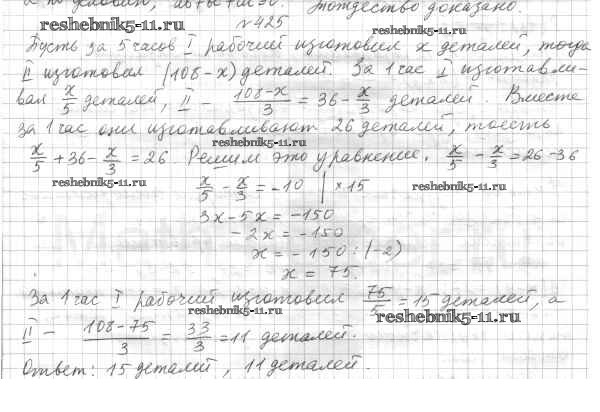 Тождество доказано.
reshebnik5-11.ru
№425
reshebnik5-11.ru
Пусть за 5 часов I рабочий изготовил x деталей, тогда
II изготовил (108-x) деталей. За 1 час I изготавли-
вал x/5 деталей, II - (108-x)/3 = 36 - x/3 деталей. Вместе
за 1 час они изготавливают 26 деталей, то есть
reshebnik5-11.ru
x/5 + 36 - x/3 = 26 Решим это уравнение. x/5 - x/3 = 26-36
reshebnik5-11.ru
x/5 - x/3 = -10 | ×15
reshebnik5-11.ru
3x-5x = -150
-2x = -150
x = -150:(-2)
x = 75.
За 1 час I рабочий изготовил 75/5 = 15 деталей, а
reshebnik5-11.ru
reshebnik5-11.ru
II - (108-75)/3 = 33/3 = 11 деталей.
Ответ: 15 деталей, 11 деталей.